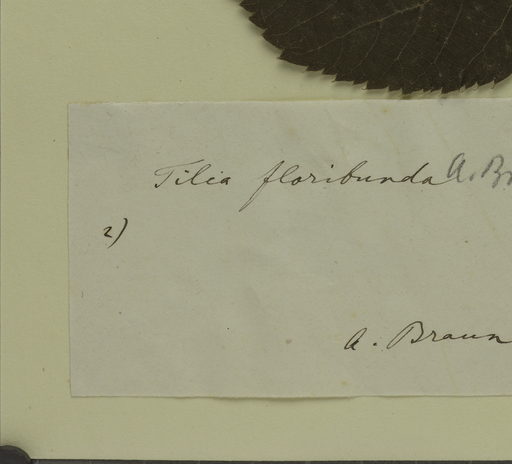 Tilia floribunda A. Br
2)
A. Braun